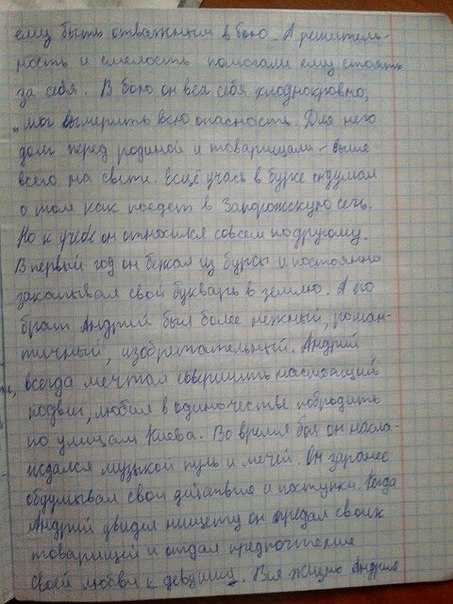 ему быть отважным в бою. А решитель-
ность и смелость помогали ему стоять
за себя. В бою он вел себя хладнокровно,
мог вымерить всю опасность. Для него
долг перед родиной и товарищами - выше
всего на свете. Ещё учась в бурсе он думал
о том как поедет в Запорожскую сечь.
Но к учёбе он относился совсем по другому.
В первый год он бежал из бурсы и постоянно
закапывал свой букварь в землю. А его
брат Андрий был более нежный, роман-
тичный, изобретательный. Андрий
всегда мечтал совершить настоящий
подвиг, любил в одиночестве побродить
по улицам Киева. Во время боя он насла-
ждался музыкой пуль и мечей. Он заранее
обдумывал свои действия и поступки. Когда
Андрий увидел нищету он предал своих
товарищей и отдал предпочтение
своей любви к девушке. Вся жизнь Андрия